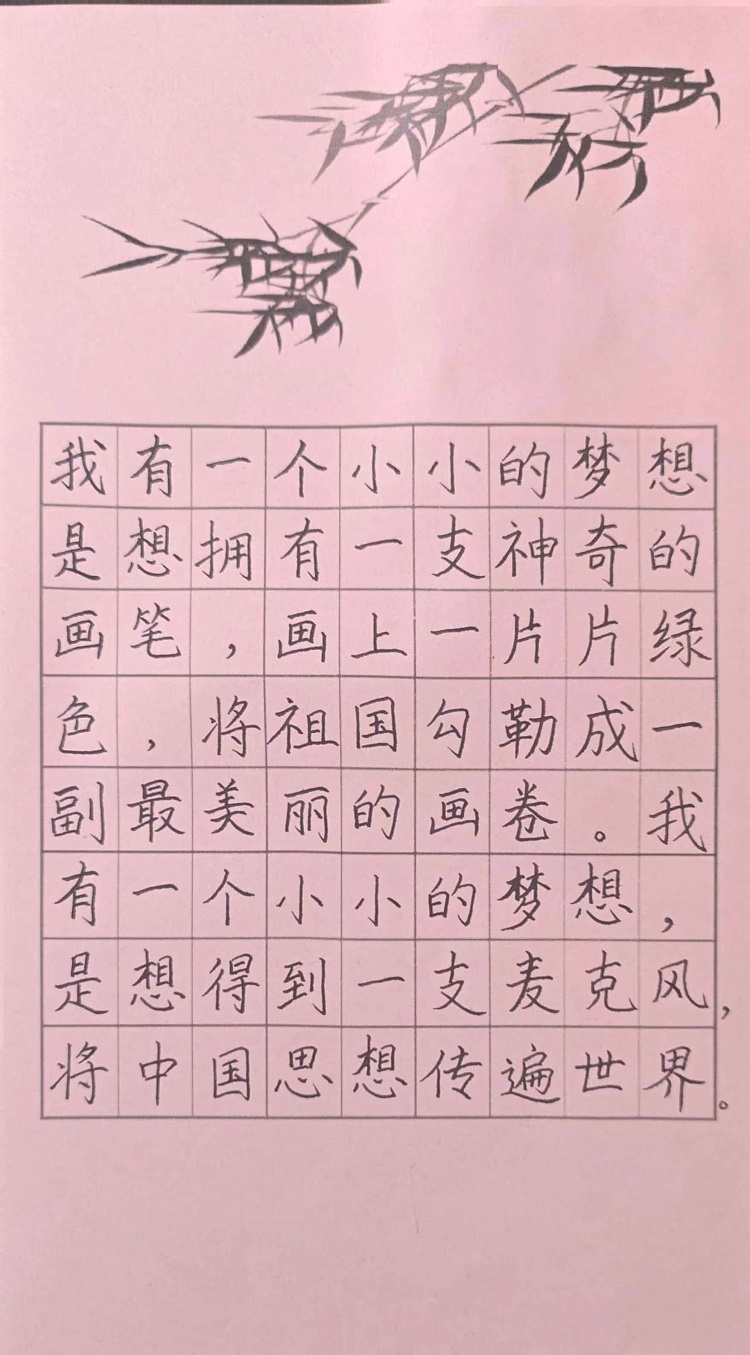 我有一个小小的梦想
是想拥有一支神奇的
画笔，画上一片片绿
色，将祖国勾勒成一
副最美丽的画卷。我
有一个小小的梦想，
是想得到一支麦克风，
将中国思想传遍世界。